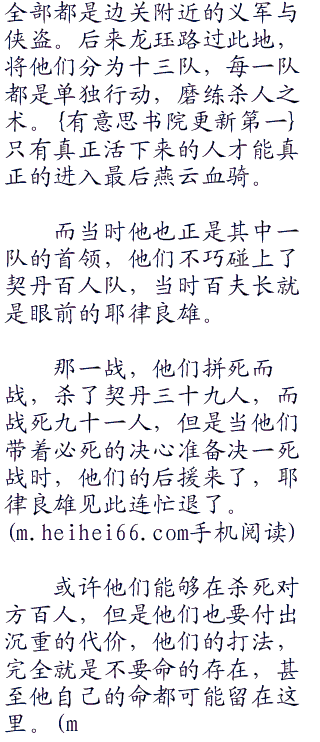 全部都是边关附近的义军与
侠盗。后来龙珏路过此地，
将他们分为十三队，每一队
都是单独行动，磨练杀人之
术。{有意思书院更新第一}
只有真正活下来的人才能真
正的进入最后燕云血骑。
而当时他也正是其中一
队的首领，他们不巧碰上了
契丹百人队，当时百夫长就
是眼前的耶律良雄。
那一战，他们拼死而
战，杀了契丹三十九人，而
战死九十一人，但是当他们
带着必死的决心准备决一死
战时，他们的后援来了，耶
律良雄见此连忙退了。
(m.heihei66.com手机阅读)
或许他们能够在杀死对
方百人，但是他们也要付出
沉重的代价，他们的打法，
完全就是不要命的存在，甚
至他自己的命都可能留在这
里。(m